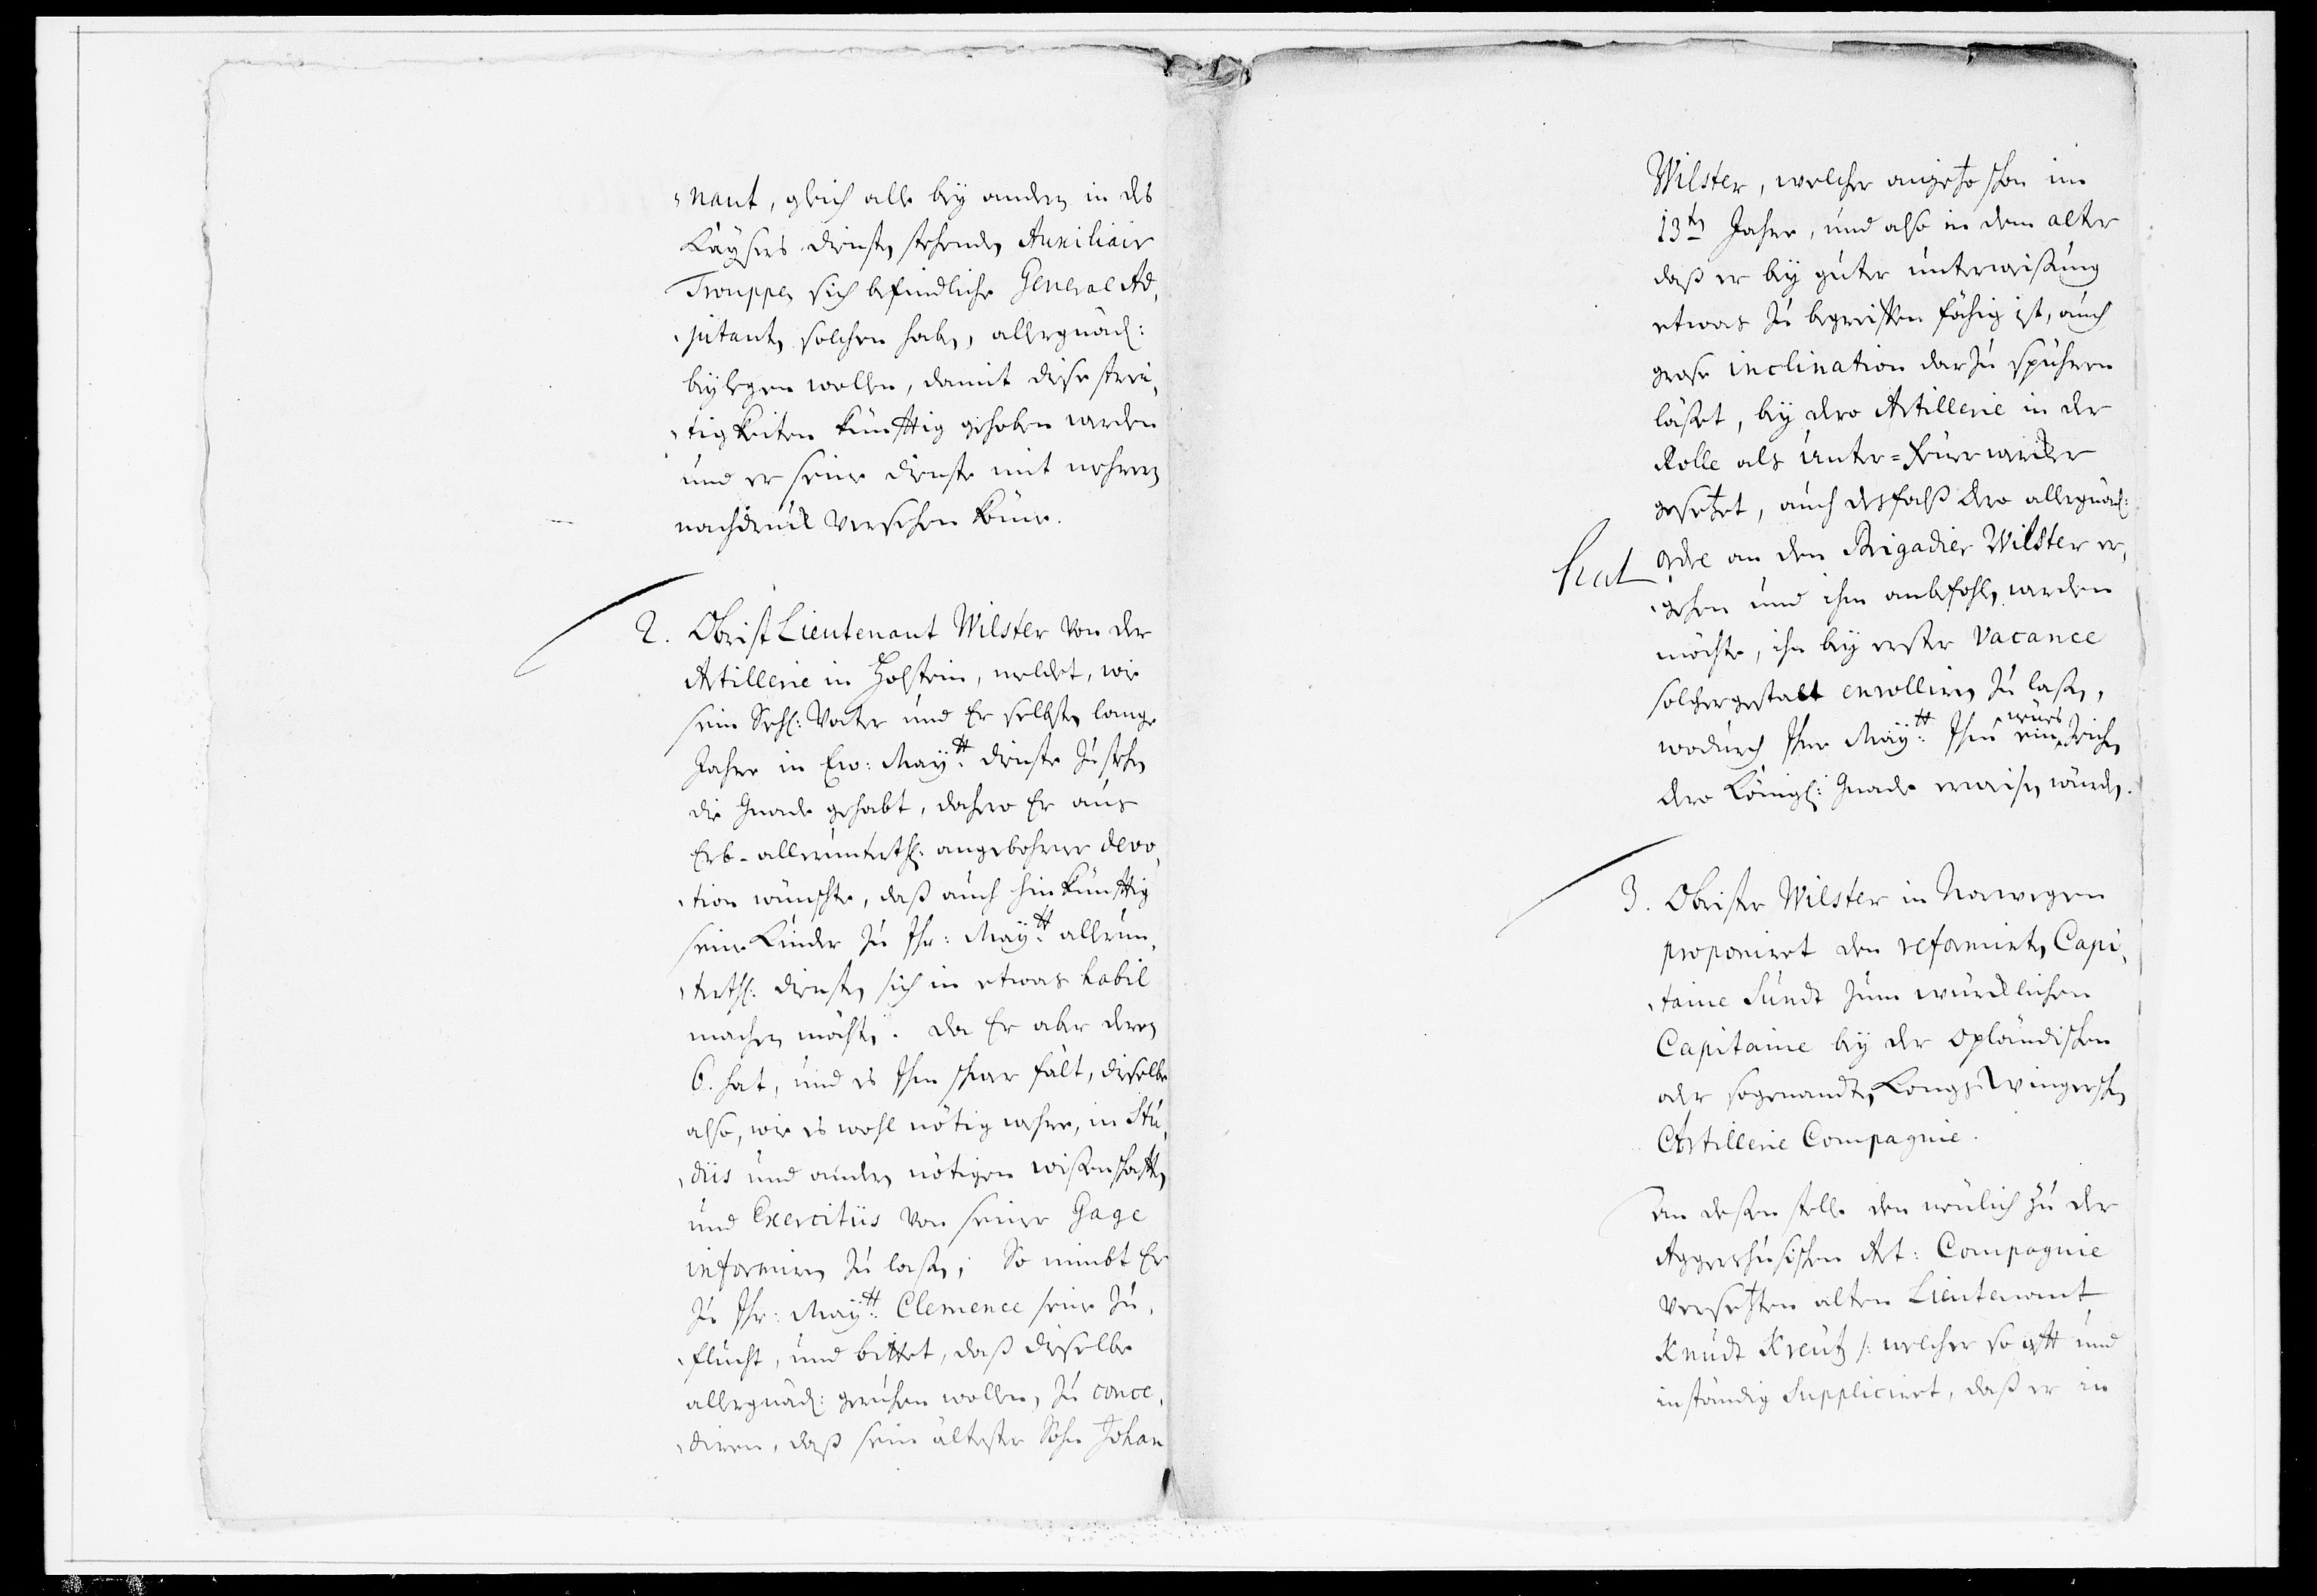 nant, gleich alle bey andern in des
Käysers dienste stehende Auxiliair
Trouppen sich befindliche General Ad,
jutanten solchen haben, allergnäd:
beylegen wollen, damit diese strei,
tigkeiten künfftig gehoben werden
und er seine dienste mit mehrern
nachdruck versehen könne.
2. Obrist Lieutenant Wilster von der
Artillerie in Holstein, meldet, wie
sein Sehl: Vater und Er selbsten lange
Jahre in Ew: Mayᵗᵗ: dienste zu stehen
die Gnade gehabt, dahero Er aus
Erb-allerunterth: angebohrner devo,
tion wünschte, daß auch hinkünfftig
seine Kinder zu Ihr: Mayᵗᵗ: allerun,
terth: diensten sich in etwas habil
machen möchten. Da Er aber deren
6. hat, und es Ihm schwer fält, dieselbe
also, wie es wohl nötig wehre, in Stu,
diis und andern nötigen wißenschafften
und Exercitiis von seiner Gage
informiren zu laßen; So nimbt Er
zu Ihr: Mayᵗᵗ: Clemence seine Zu,
flucht, und bittet, daß dieselbe
allergnäd: geruhen wollen, zu conce,
diren, daß sein ältester Sohn Johan
Wilster, welcher anjetzo schon im
13ten Jahre, und also in dem alter
daß er bey guter unterweißung
etwas zu begreiffen fähig ist, auch
grose inclination darzu spühren
läßet, bey dero Artillerie in der
Rolle als Unter-Feürwercker
gesetzet, auch desfalß dero allergnäd:
hat
ordre an den Brigadier Wilster er,
gehen und ihm anbefohlen werden
möchte, ihn bey erster Vacance
solchergestalt enrolliren zu laßen,
wodurch Ihre Mayᵗᵗ: Ihm ein neües Zeichen
dero Königl: Gnade erweisen würden.
3. Obrister Wilster in Norwegen
proponiret den reformirten Capi,
taine Sundt zum würcklichen
Capitaine bey der Opländischen
oder sogenandten Kongswingerschen
Artillerie Compagnie.
An deßen stelle den neülich zu der
Aggershusischen Art: Compagnie
versetzten alten Lieutenant
Knudt Kreutz /: welcher so offt und
inständig Suppliciret, daß er in